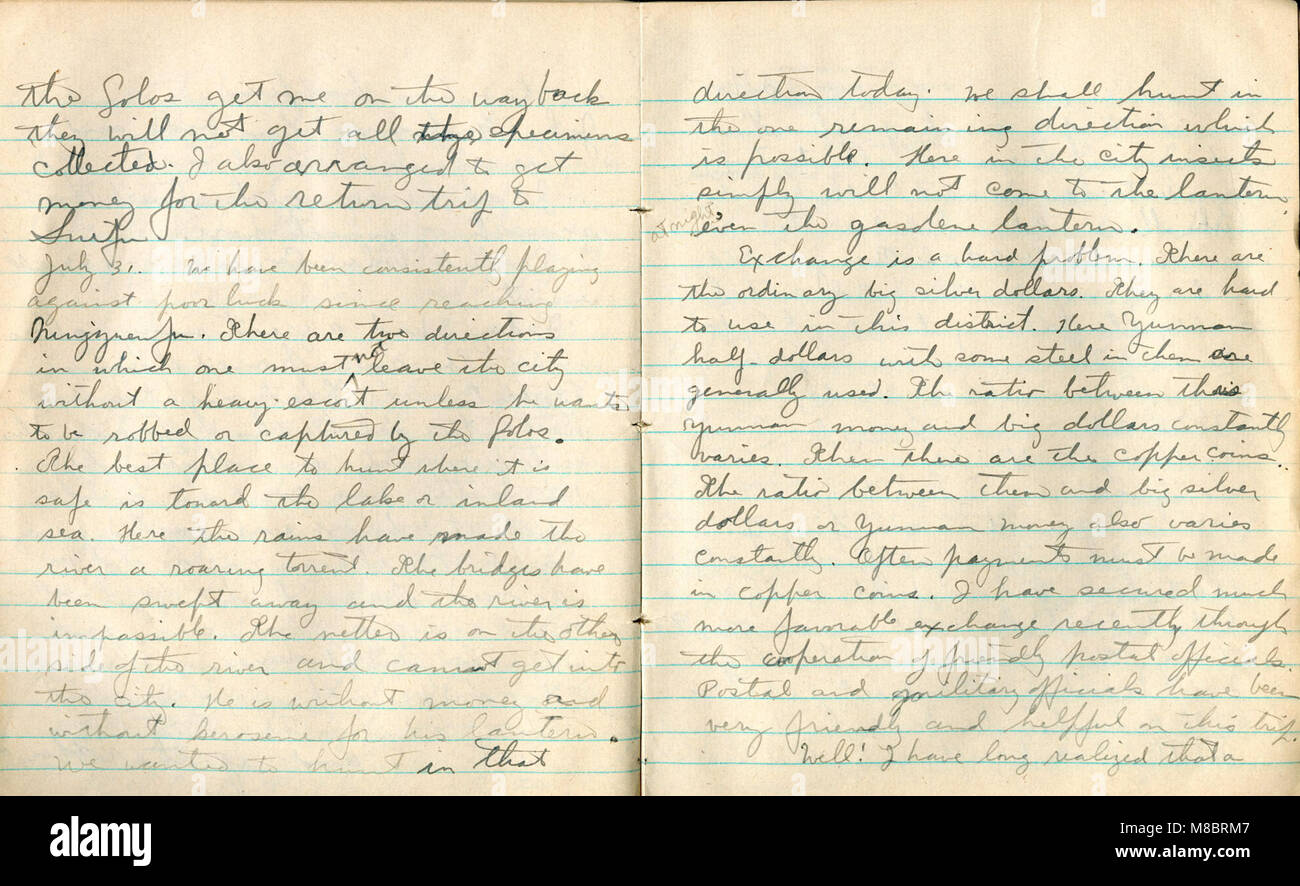 the Golos get me on the way back
they will not get all the specimens
collected. I also arranged to get
money for the return trip to
Suifu
July 31. We have been consistently playing
against poor luck since reaching
Ningyuenfu. There are two directions
in which one must not leave the city
without a heavy escort unless he wants
to be robbed or captured by the Golos.
The best place to hunt where it is
safe is toward the lake or inland
sea. Here the rains have made the
river a roaring torrent. The bridges have
been swept away and the river is
impassible. The netter is on the other
side of the river and cannot get into
the city. He is without money and
without kerosene for his lantern.
We wanted to hunt in that
direction today. We shall hunt in
the one remaining direction which
is possible. Here in the city insects
simply will not come to the lantern
at night, even the gasolene lantern.
Exchange is a hard problem. There are
the ordinary big silver dollars. They are hard
to use in this district. Here Yunnan
half-dollars with some steel in them are
generally used. The ratio between this
Yunnan money and big dollars constantly
varies. Then there are the copper coins.
The ratio between them and big silver
dollars or Yunnan money also varies
constantly. Often payments must be made
in copper coins. I have secured much
more favorable exchange recently through
the cooperation of friendly postal officials.
Postal and military officials have been
very friendly and helpful on this trip.
Well! I have long realized that a
alamy
Image ID: M8BRM7
www.alamy.com